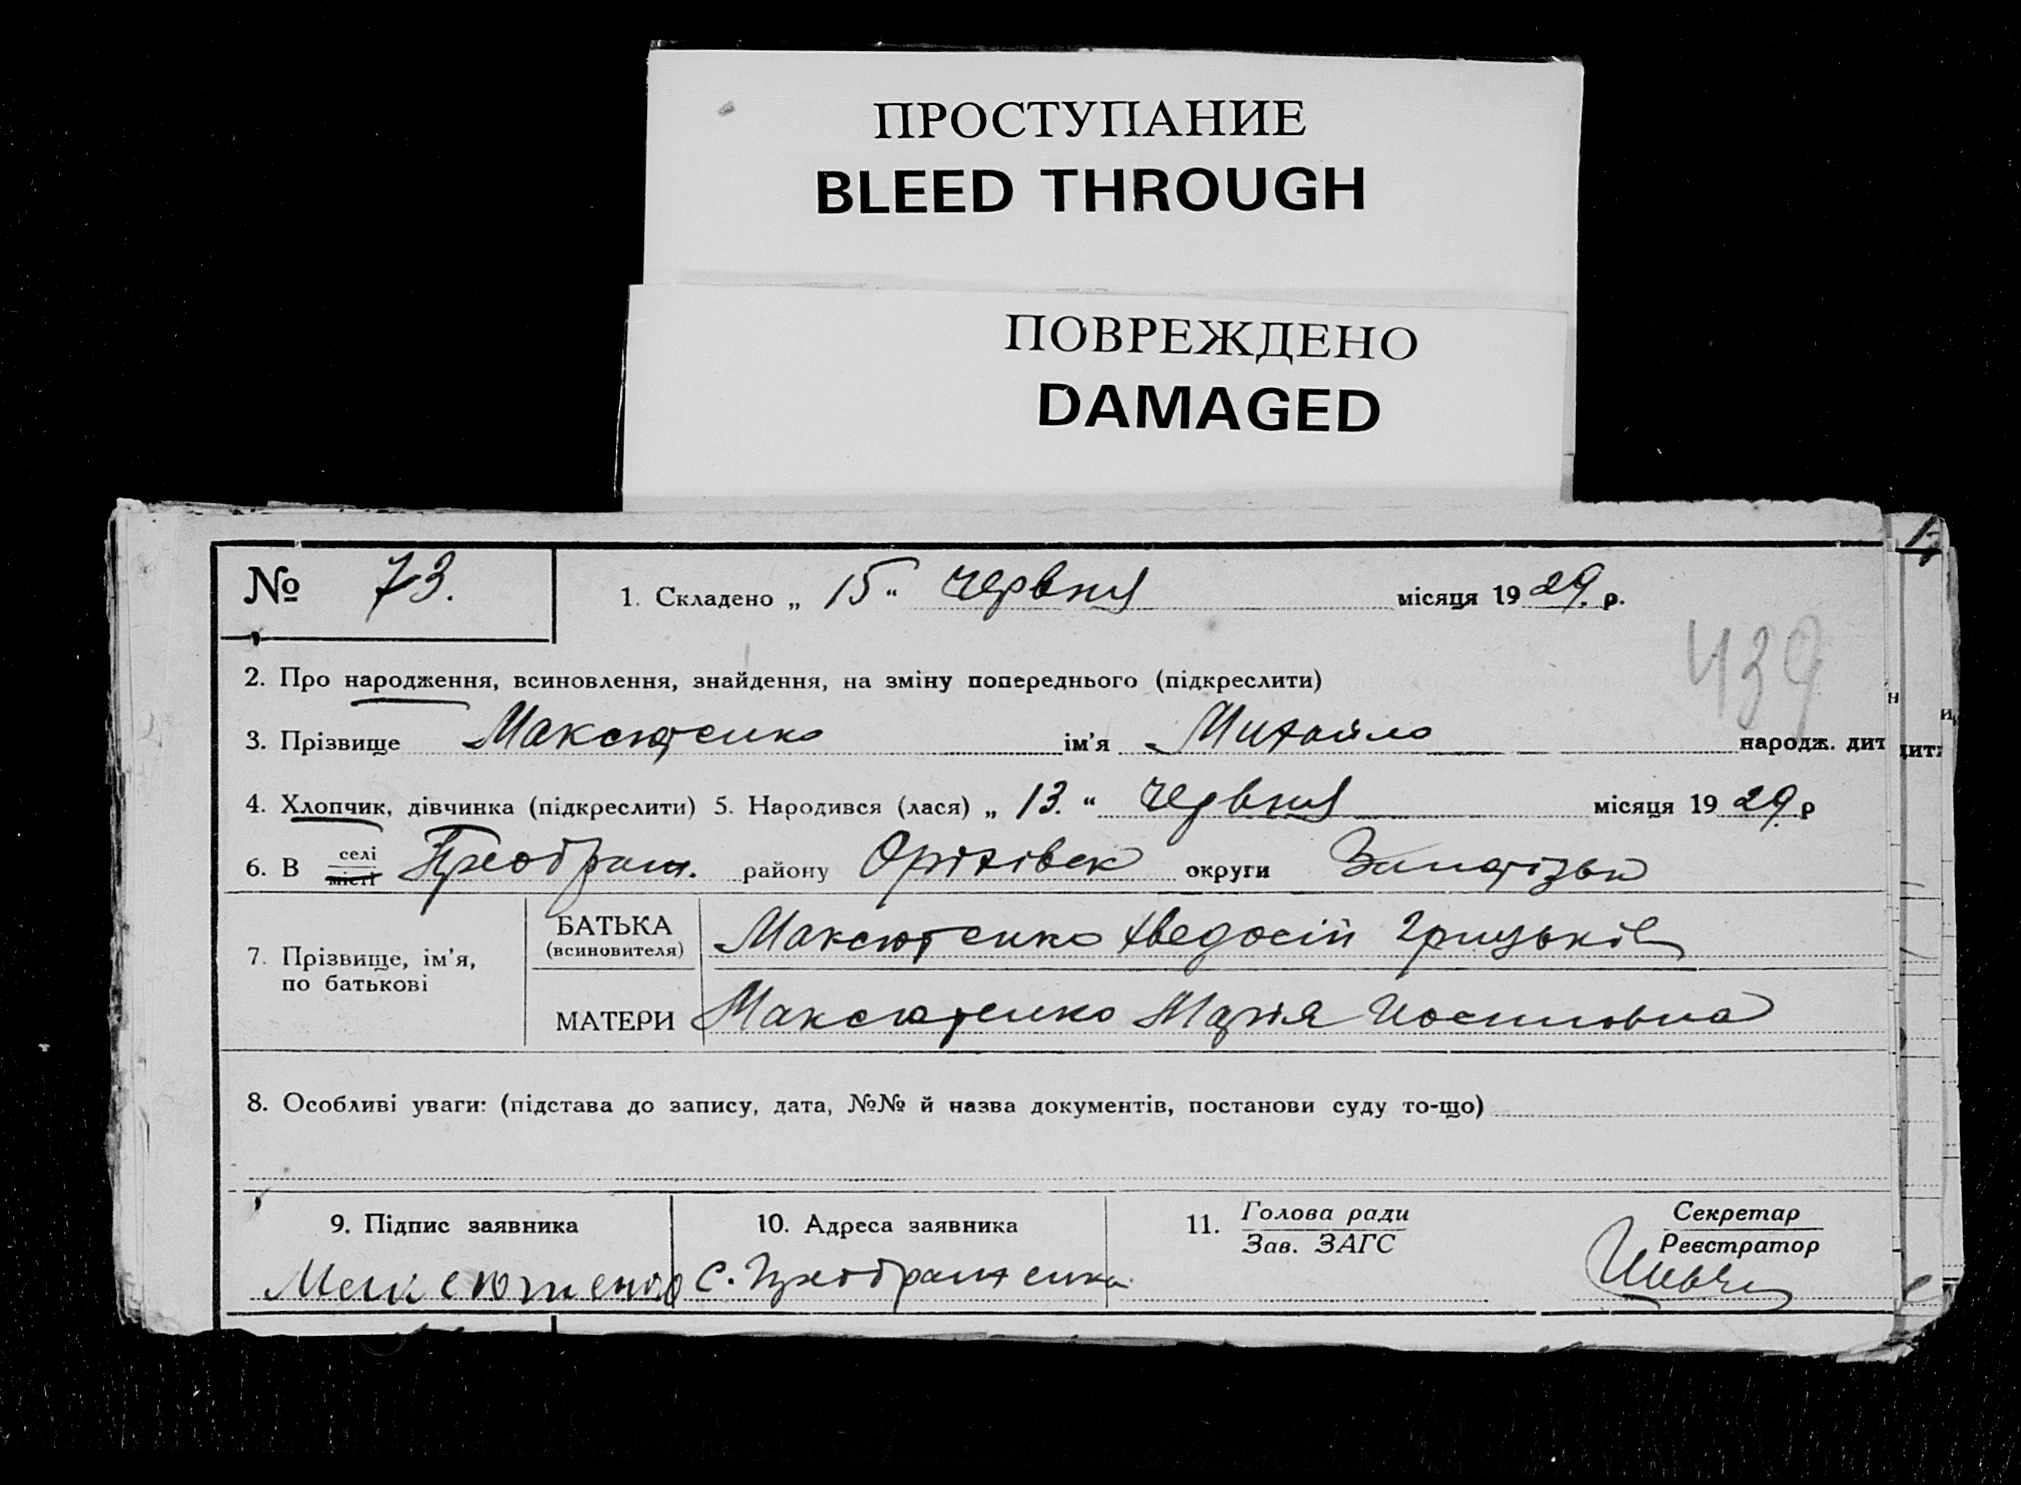 ПРОСТУПАНИЕ
BLEED THROUGH
ПОВРЕЖДЕНО
DAMAGED
№ 73. 1. Складено „ 15 “ червня місяця 1929. р.
439
2. Про народження, всиновлення, знайдення, на зміну попереднього (підкреслити)
3. Прізвище Максютенко ім'я Михайло народж. дит
4. Хлопчик, дівчинка (підкреслити) 5. Народився (лася) „ 13. “ червня місяця 1929. р
6. В селі місті Преображ. району Оріхівськ округи
7. Прізвище, ім'я, по батькові
БАТЬКА (всиновителя) Максютенко Хведосій Грицьків
МАТЕРИ Максютенко Марія Иосиповна
8. Особливі уваги: (підстава до запису, дата, №№ й назва документів, постанови суду то-що)
9. Підпис заявника 10. Адреса заявника 11. Голова ради Секретар
Зав. ЗАГС Реєстратор
Максютенко с. Преображенка